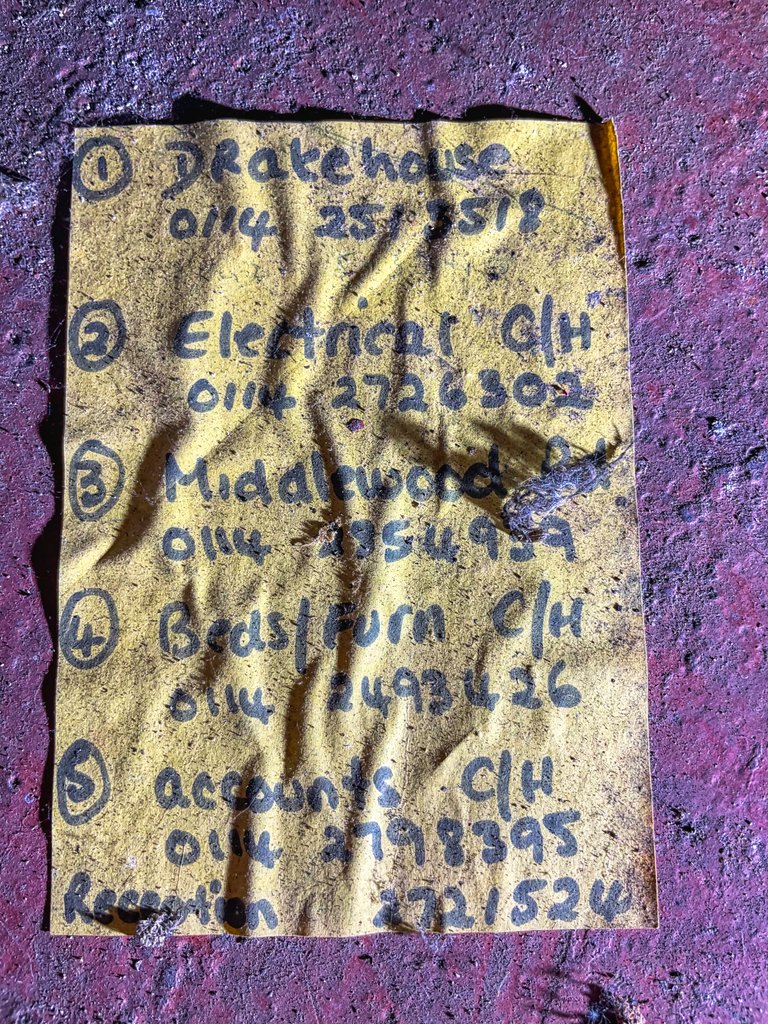 ① DRakehouse
0114 251 3518
② Electrical C/H
0114 2726302
③ Middlewood Rd
0114 2354939
④ Beds/Furn C/H
0114 2493426
⑤ accounts C/H
0114 2798395
Reception 2721524